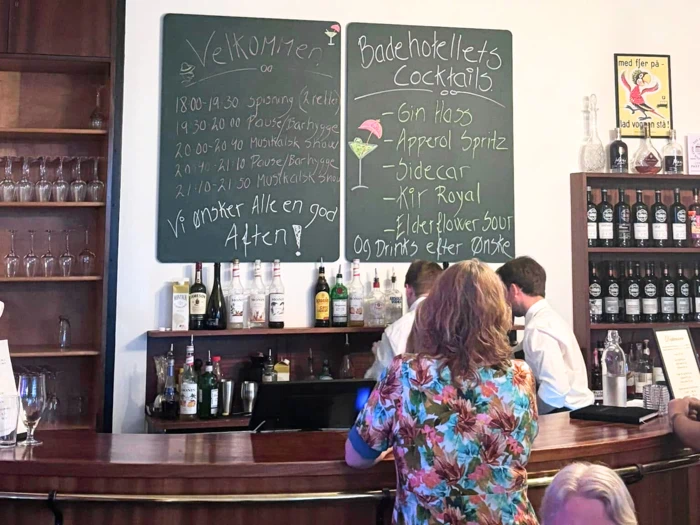 Velkommen
18:00-19:30 Spisning (2 retter)
19:30-20:00 Pause/Barhygge
20:00-20:40 Musikalsk Show
20:40-21:10 Pause/Barhygge
21:10-21:50 Musikalsk Show
Vi Ønsker Alle en god
Aften!
Badehotellets
Cocktails.
- Gin Hass
- Apperol Spritz
- Sidecar
- Kir Royal
- Elderflower Sour
Og Drinks efter Ønske
med fjer på -
lad vognen stå!